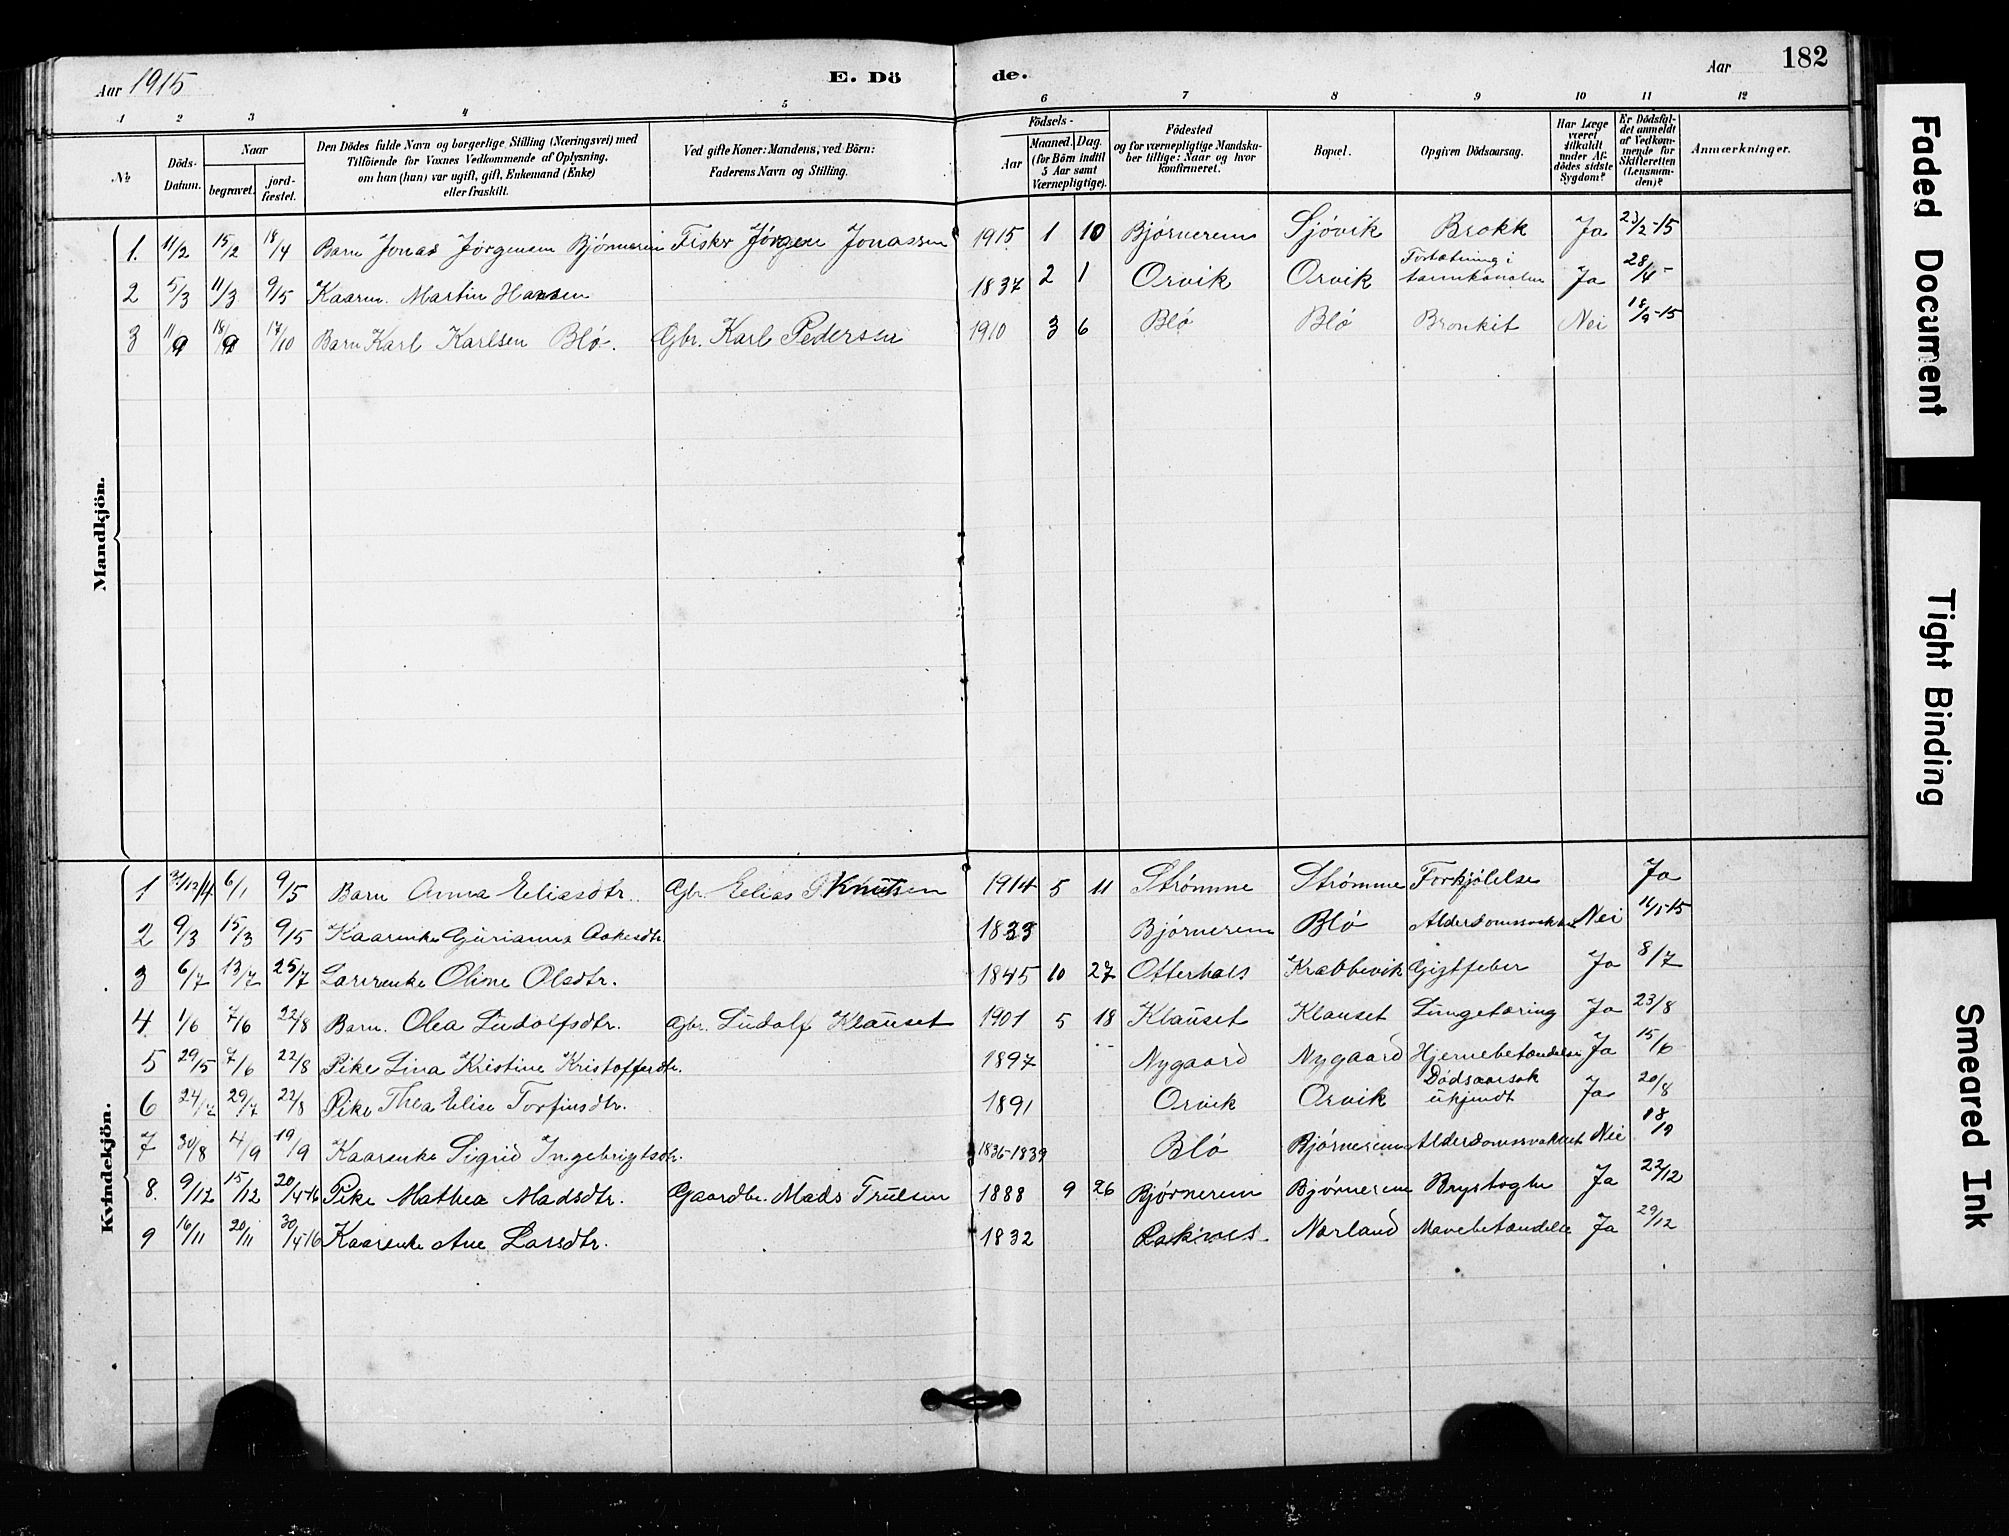 Aar 1915
E. Döde.
Aar 182
1 2 3 4 5 6 7 8 9 10 11 12
№
Döds-Datum.
Naar
begravet.
jord-fæstet.
Den Dödes fulde Navn og borgerlige Stilling (Næringsvei) med Tilföiende for Voxnes Vedkommende af Oplysning, om han (hun) var ugift, gift, Enkemand (Enke) eller fraskilt.
Ved gifte Koner: Mandens; ved Börn: Faderens Navn og Stilling.
Födsels-
Aar
Maaned. Dag.
(for Börn indtil 5 Aar samt Værnepligtige).
Födested og for værnepligtige Mandskaber tillige: Naar og hvor konfirmeret.
Bopæl.
Opgiven Dödsaarsag.
Har Læge været tilkaldt under Afdödes sidste Sygdom?
Er Dödsfaldet anmeldt af Vedkommende for Skifteretten (Lensmanden)?
Anmærkninger.
Mandkjön.
1. 11/2 15/2 18/4 Barn Jonas Jörgensen Bjørnerem Fisker Jörgen Jonassen 1915 1 10 Bjørnerem Sjøvik Brokk Ja 23/2-15
2 5/3 11/3 9/5 Kaarm. Martin Hansen 1837 2 1 Orvik Orvik Fortætning i Ja 28/4-
3 11/9 18/9 17/10 Barn Karl Karlsen Blø. Gbr. Karl Pedersen 1910 3 6 Blø Blø Bronkit Nei 18/9-15
Kvindekjön.
1 6/1 9/5 Barn Anna Eliasdtr. Gbr. Elias P. Knutsen 1914 5 11 Strømme Strømme Forkjølelse Ja
2 9/3 15/3 9/5 Kaarenke Gurianna Aakesdtr. 1833 Bjørnerem Blø Alderdomssvakhet Nei
3 6/7 13/7 25/7 Oline Olsdtr. 1845 10 27 Otterhals Krabbevik Gigtfeber Ja 8/7
4. 1/6 7/6 22/8 Barn. Olea Ludolfsdtr. Gbr. Ludolf Klauset 1901 5 18 Klauset Klauset Lungetæring Ja 23/8
5 29/5 7/6 22/8 Pike Lina Kristine Kristoffersdtr. 1897 Nygaard Nygaard Hjernebetændelse Ja 15/6
6 24/7 29/7 22/8 Pike Thea Elise Torfinsdtr. 1891 Orvik Orvik Dødsaarsak ukjendt Ja 20/8
7 30/8 4/9 19/9 Kaarenke Sigrid Ingebrigtsdtr. 1836-1839 Blø Bjørnerem Alderdomssvakhet Nei 18/9
8. 9/12 15/12 20/4-16 Pike Mathea Madsdtr. Gaardbr. Mads Trulsen 1888 9 26 Bjørnerem Bjørnerem Ja 22/12
9 16/11 20/11 30/4-16 Kaarenke Ane Larsdtr. 1832 Raknes Nærland Mavebetændelse Ja 29/12
Faded Document
Tight Binding
Smeared Ink